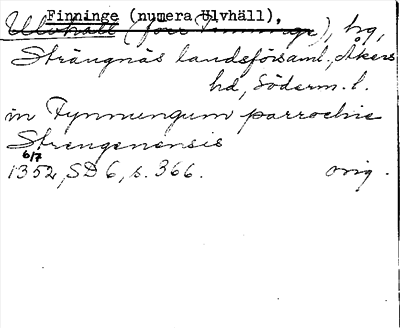 Finninge (numera Ulvhäll),
Ulvhäll (förr Finninge), hg,
Strängnäs landsförsaml., Åkers
hd, Söderm. l.
in Fynnungum parrochie
Strengenensis
6/7
1352, SD 6, s. 366. orig.